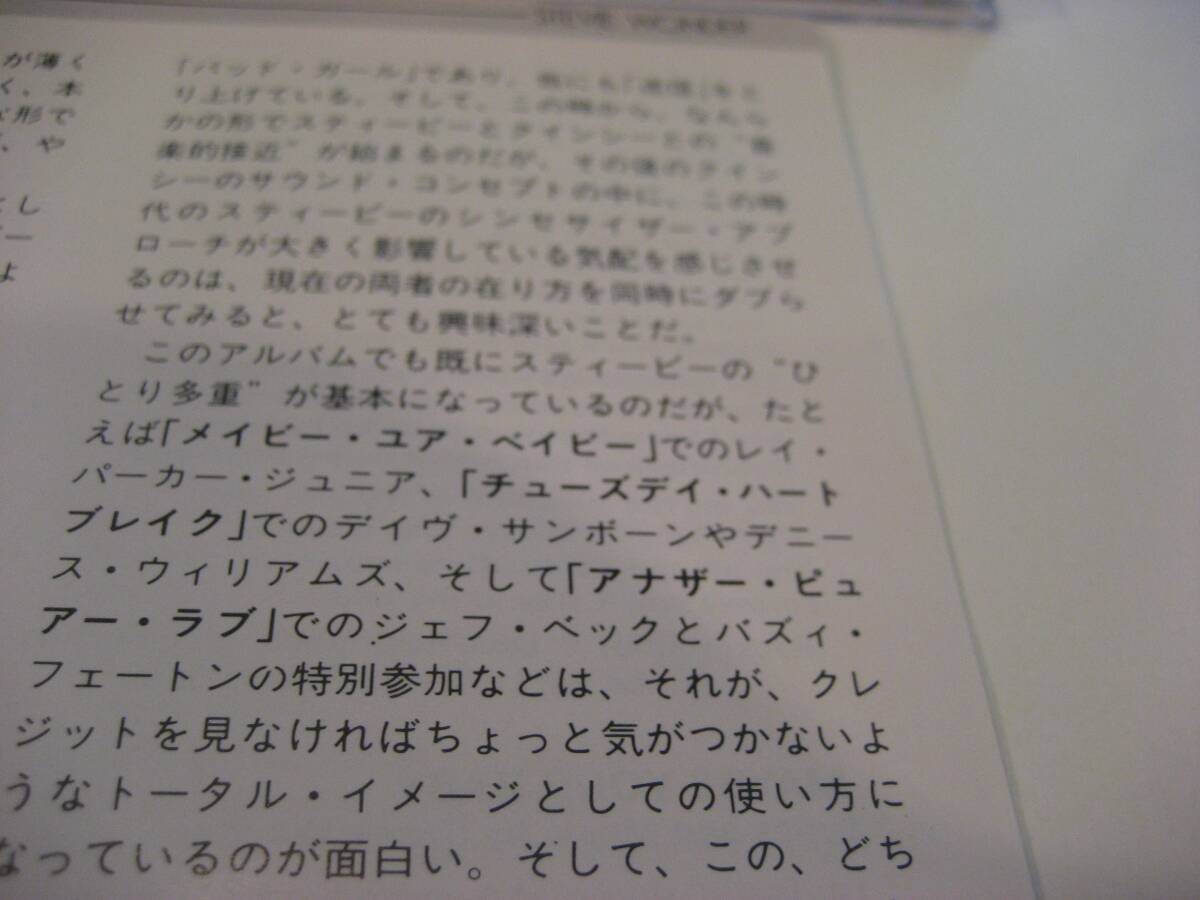 STEVIE WONDER
が薄く
く、本
な形で
、や
とし
ビー
よ
「バッド・ガール」であり、他にも「迷信」をと
り上げている。そして、この時から、なんら
かの形でスティービーとクインシーとの“音
楽的接近”が始まるのだが、その後のクイン
シーのサウンド・コンセプトの中に、この時
代のスティービーのシンセサイザー・アプ
ローチが大きく影響している気配を感じさせ
るのは、現在の両者の在り方を同時にダブら
せてみると、とても興味深いことだ。
このアルバムでも既にスティービーの“ひ
とり多重”が基本になっているのだが、たと
えば「メイビー・ユア・ベイビー」でのレイ・
パーカー・ジュニア、「チューズデイ・ハート
ブレイク」でのデイヴ・サンボーンやデニー
ス・ウィリアムズ、そして「アナザー・ピュ
アー・ラブ」でのジェフ・ベックとバズィ・
フェートンの特別参加などは、それが、クレ
ジットを見なければちょっと気がつかないよ
うなトータル・イメージとしての使い方に
なっているのが面白い。そして、この、どち